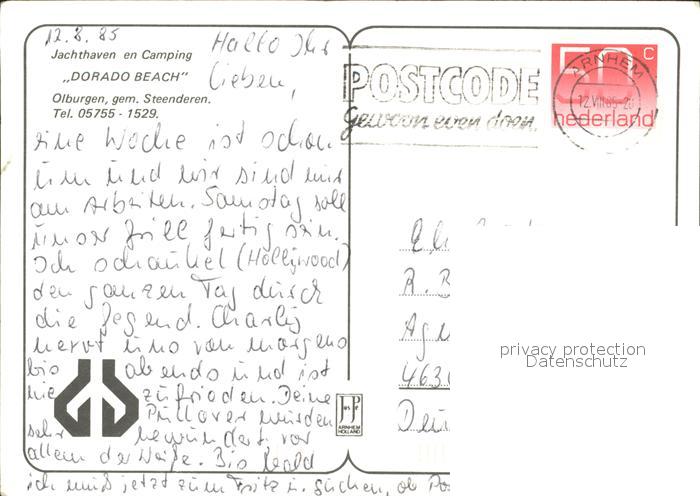 12.8.85
Jachthaven en Camping
„DORADO BEACH"
Olburgen, gem. Steenderen.
Tel. 05755 - 1529.
Hallo Ihr
Lieben,
eine Woche ist schon
um und wir sind nur
am Arbeiten. Samstag soll
unser Grill fertig sein.
Ich schaukel (Hollijwood)
den ganzen Tag durch
die Gegend. Charlij
nervt uns von morgens
bis abends und ist
nie zufrieden. Deine
Pullover wurden
sehr bewundert vor
allem der Weiße. Bis bald
ich muß jetzt zum Fritz u. suchen, ob Po
POSTCODE
gewoon even doen.
50 c
nederland
ARNHEM
12.VIII.85-20
R. B
Ag
4630
Deu
JosPé
ARNHEM
HOLLAND
privacy protection
Datenschutz